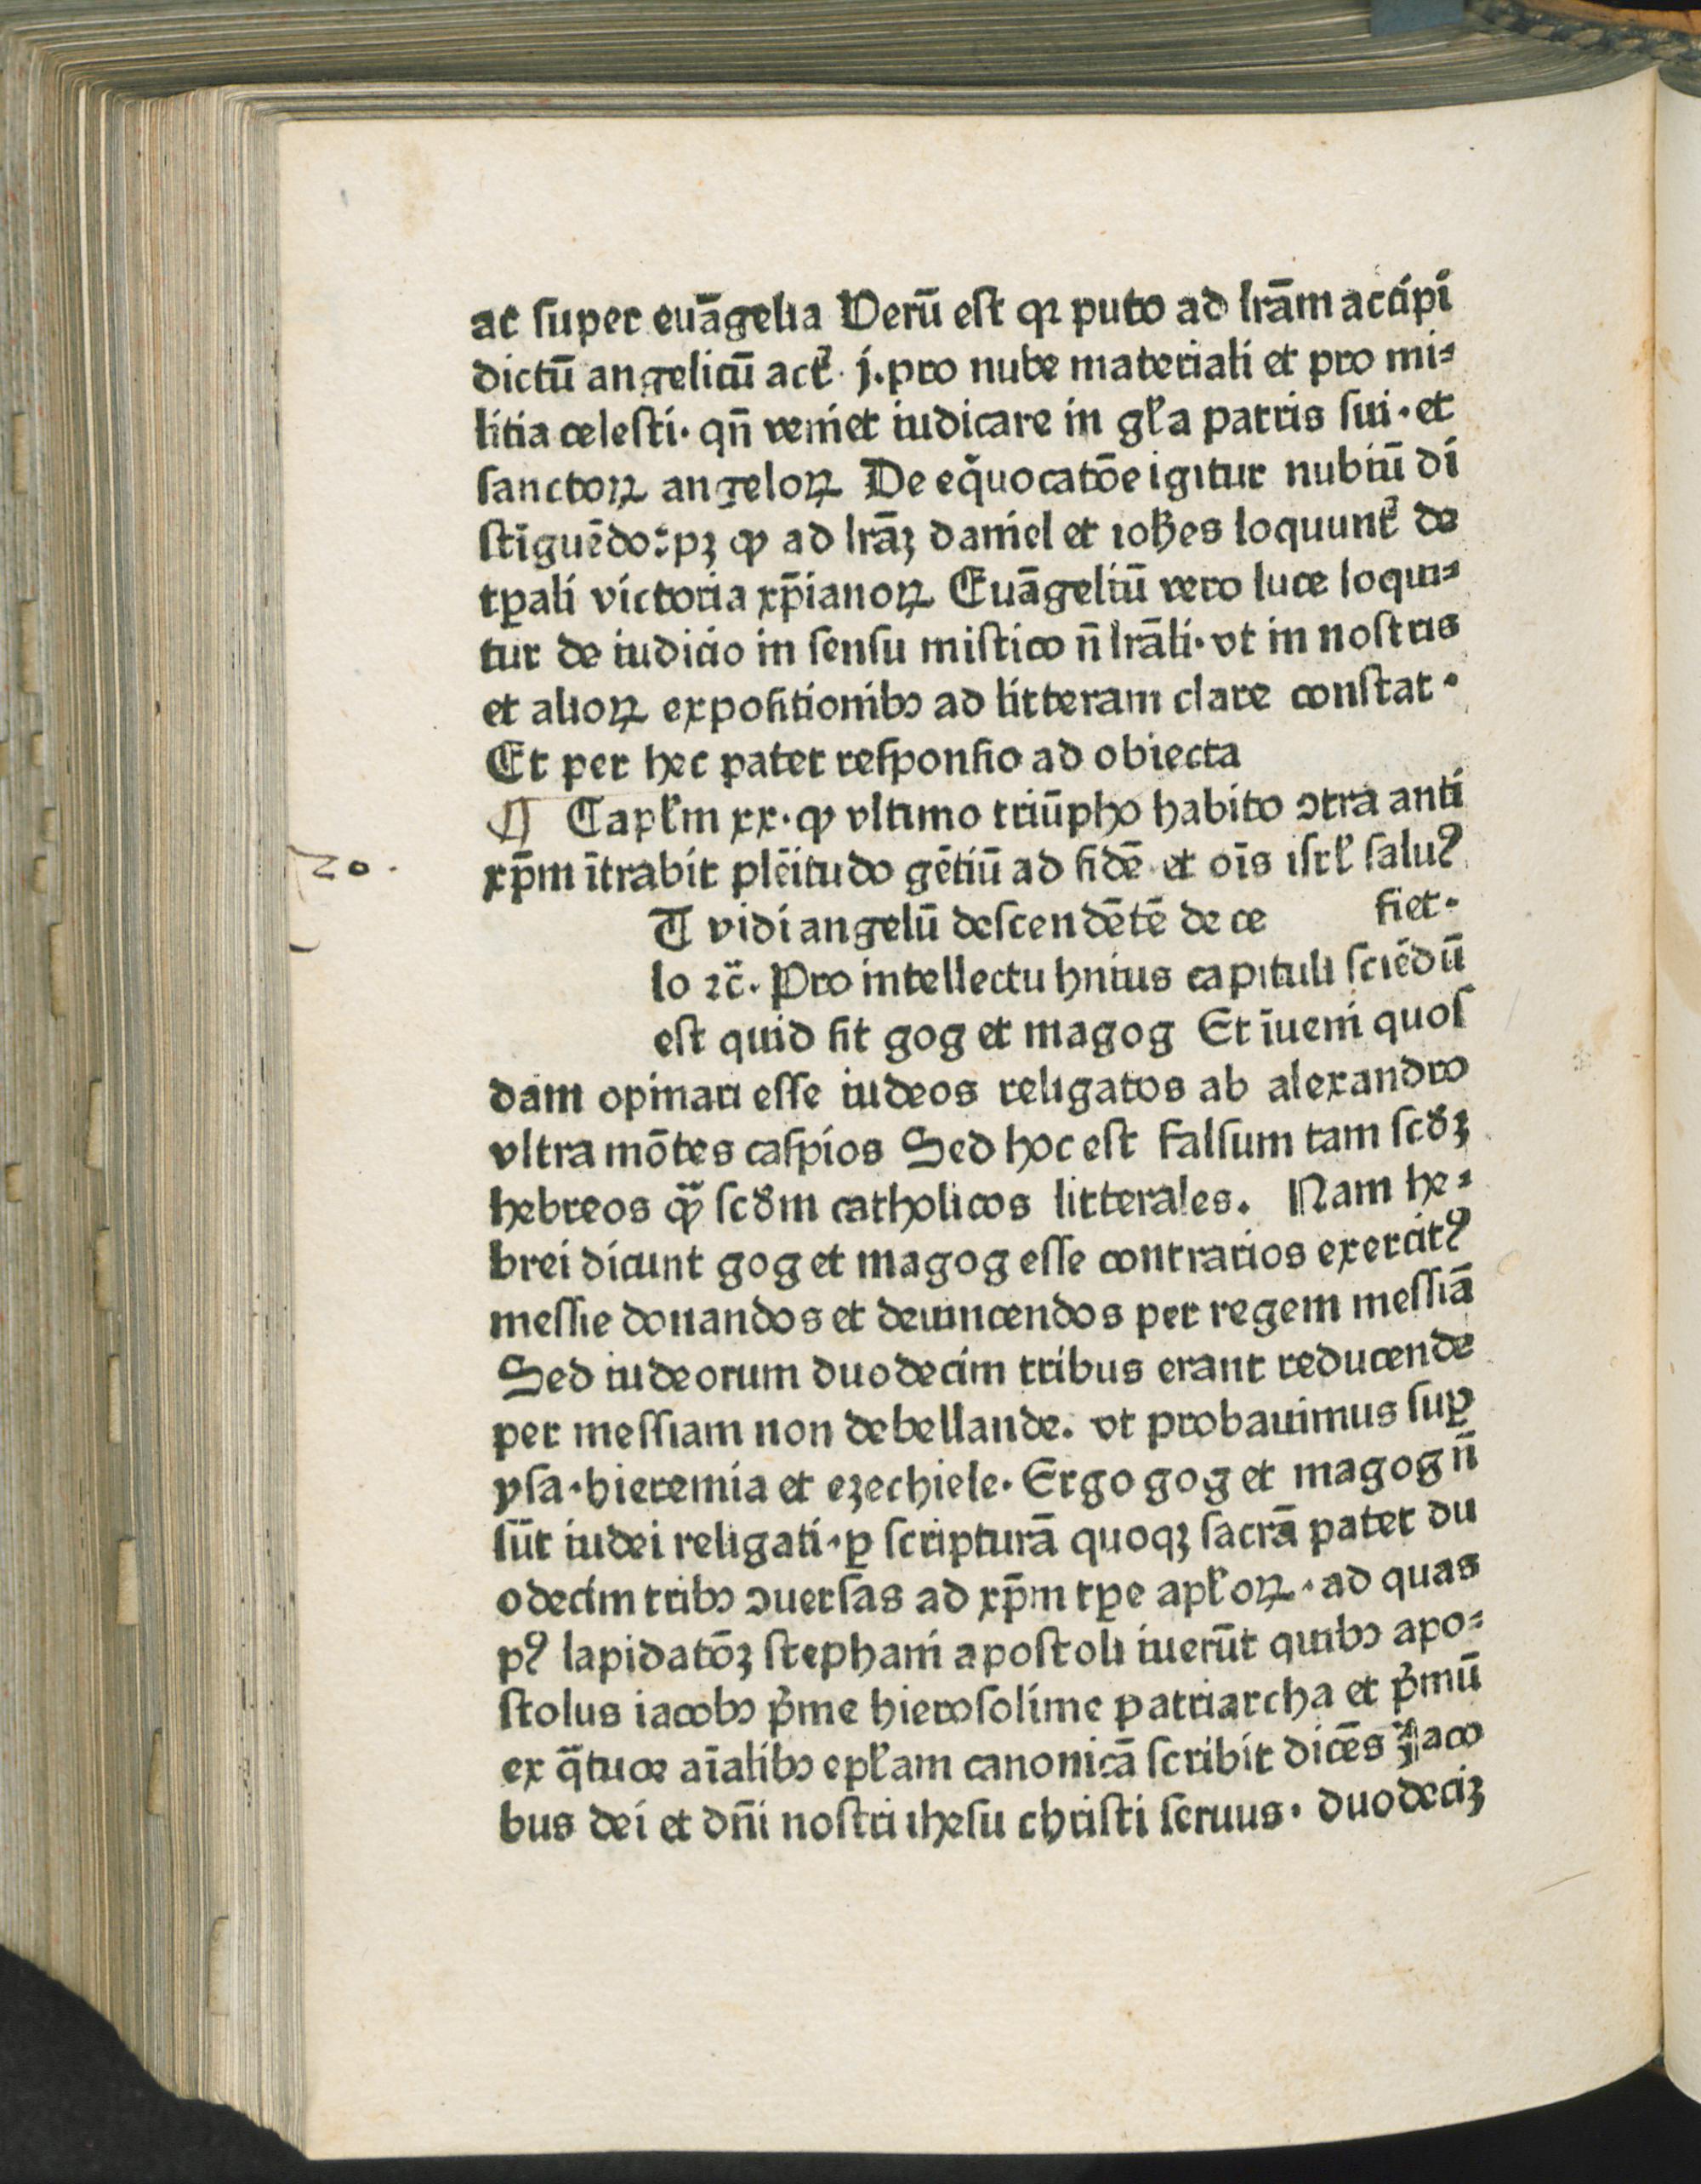 ac ſuper euāgelia Verū eſt ꝙ puto ad lrām accipi
dictū angelicū act̉. j. pro nube materiali et pro mi⸗
litia celeſti· qn̄ veniet iudicare in gl̉a patris ſui· et
ſanctoꝝ angeloꝝ De eq̄uocatōe igitur nubiū di
ſtīguēdo: pꝫ ꝙ ad lrāꝫ daniel et ioħes loquunt̉ de
tꝑali victoria xp̄ianoꝝ Euāgeliū vero luce loqui⸗
tur de iudicio in ſenſu miſtico n̄ lrāli· vt in noſtris
et alioꝝ expoſitionibꝰ ad litteram clare conſtat·
Et per hec patet reſponſio ad obiecta
¶ Capl̉m xx· ꝙ vltimo triūpho habito ↄtra anti
xp̄m ītrabit plēitudo gētiū ad fidē et oīs iſrl̉ ſaluꝰ
20.
fiet·
T vidi angelū deſcendētē de ce
lo ⁊c̄. Pro intellectu hnius capituli ſciēdū
eſt quid ſit gog et magog Et īueni quoſ
dam opinari eſſe iudeos religatos ab alexandro
vltra mōtes caſpios Sed hoc eſt falſum tam ſcd̉ꝫ
hebreos ꝙ̄ ſcd̉m catholicos litterales. Nam he⸗
brei dicunt gog et magog eſſe contrarios exercitꝰ
meſſie domandos et deuincendos per regem meſſiā
Sed iudeorum duodecim tribus erant reducende
per meſſiam non debellande. vt probauimus ſuꝑ
yſa· hieremia et ezechiele· Ergo gog et magog n̄
ſūt iudei religati· ꝑ ſcripturā quoqꝫ ſacrā patet du
odecim tribꝰ ↄuerſas ad xp̄m tꝑe apl̉oꝝ· ad quas
pꝰ lapidatōꝫ ſtephani apoſtoli iuerūt quibꝰ apo⸗
ſtolus iacobꝰ p̉me hieroſolime patriarcha et p̉mū
ex q̄tuor aīalibꝰ epl̉am canonicā ſcribit dicēs Jaco
bus dei et dn̄i noſtri iheſu chriſti ſeruus· duodeciꝫ